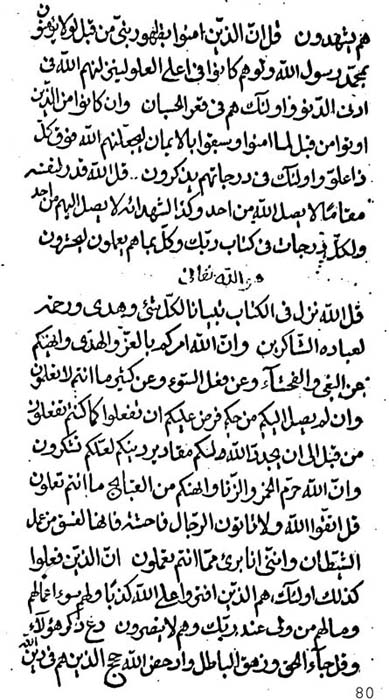 هم يشهدون قل انّ الذين امنوا بظهور بنيّ من قبل لو لا يؤمنون
بمحمّد رسول الله ولو هم كانوا فى اعلى العلو ليزلنهم الله فى
ادنى الدنو واولئك هم فى قعر الحسبان وان كانوا من الذين
اوتوا من قبل لما امنوا وسبقوا بالايمان ليجعلنهم الله فوق كل
ذا علو واولئك فى درجاتهم يذكرون قل الله قدر لنفسه
مقاما لا يصل الله من احد وكذا الشهدائه لا يصل اليهم من احد
ولكل درجات فى كتاب ربك وكل بما هم يعملون ليجزون
الله تعالى
قل الله نزل فى الكتاب تبيانا لكل شئ وهدى ورحمة
لعباده الشاكرين وان الله امركم بالعز والهدى وانهيكم
عن البغى والفحشاء وعن فعل السوء وعن كثير ما انتم لا تعلمون
وان لم يصل اليكم من حكم فرض عليكم ان تفعلوا كما كنتم تفعلون
من قبل الى ان يحدث الله لكم مقادير دينكم لعلكم تشكرون
وان الله حرم الخمر والزنا وانهيكم من القبايح ما انتم تعملون
قل اتقوا الله ولا تاتون الرجال فاحشة فانها لفسق من عمل
الشيطان وانني انا برئ مما انتم تعملون ان الذين فعلوا
كذلك اولئك هم الذين افتروا على الله كذبا ولهم سوء اعمالهم
وما لهم من ولى عند ربك وهم لا ينصرون دع ذكر هؤلاء
وقل جاء الحق وزهق الباطل وادحض الله حج الذين هم فى دين الله
80